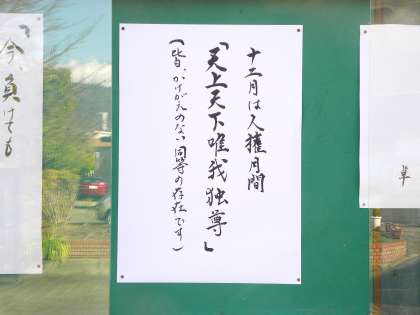 卓
十二月は人権月間
「天上天下唯我独尊」
(皆、かけがえのない同等の存在です)
「今、負けても